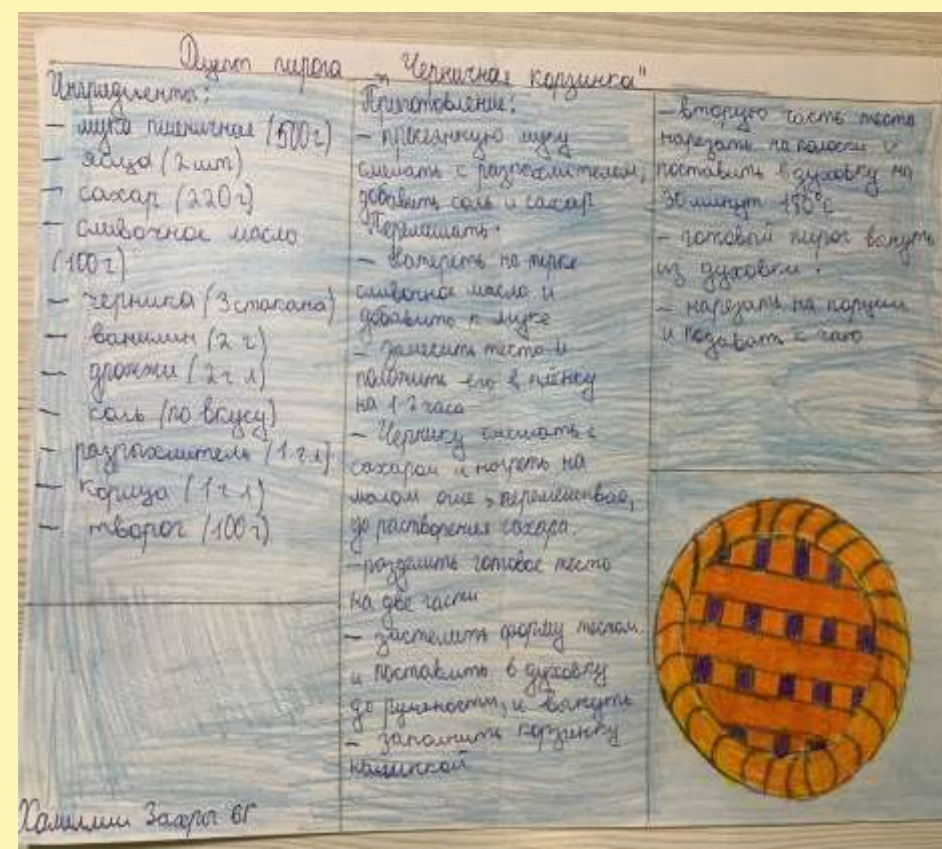 Рецепт пирога „Черничная корзинка"
Ингридиенты:
- мука пшеничная (500г)
- яйца (2 шт)
- сахар (220г)
- сливочное масло
(100г)
- черника (3 стакана)
- ванилин (2 г)
- дрожжи (2 ч л)
- соль (по вкусу)
- разрыхлитель (1 ч л)
- Корица (1 ч л)
- творог (100г)
Приготовление:
- просеянную муку
смешать с разрыхлителем,
добавить соль и сахар
Перемешать.
- натереть на тёрке
сливочное масло и
добавить к муке
- замесить тесто и
положить его в плёнку
на 1-2 часа
- Чернику смешать с
сахаром и нагреть на
малом огне, перемешивая,
до растворения сахара.
- разделить готовое тесто
на две части
- застелить форму тестом
и поставить в духовку
до румяности, и вынуть
- заполнить корзинку
начинкой
- вторую часть теста
нарезать на полоски и
поставить в духовку на
30 минут 180°C
- готовый пирог вынуть
из духовки.
- нарезать на порции
и подавать с чаю
6Г